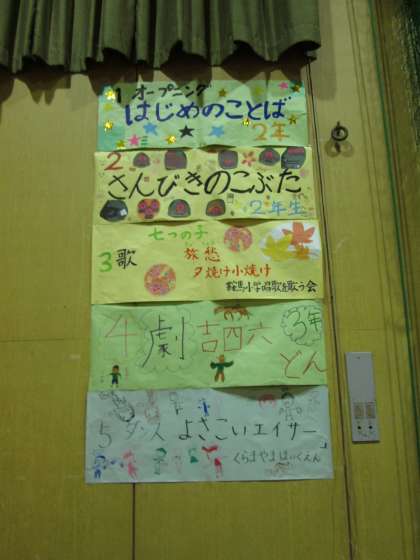 1 オープニング
はじめのことば
2年
2
さんびきのこぶた
2年生
七つの子
3 歌 旅愁
夕焼け小焼け
鞍馬小学唱歌を歌う会
4 劇 吉四六
3年
どん
5 ダンス よさこいエイサー
くらまやまほいくえん